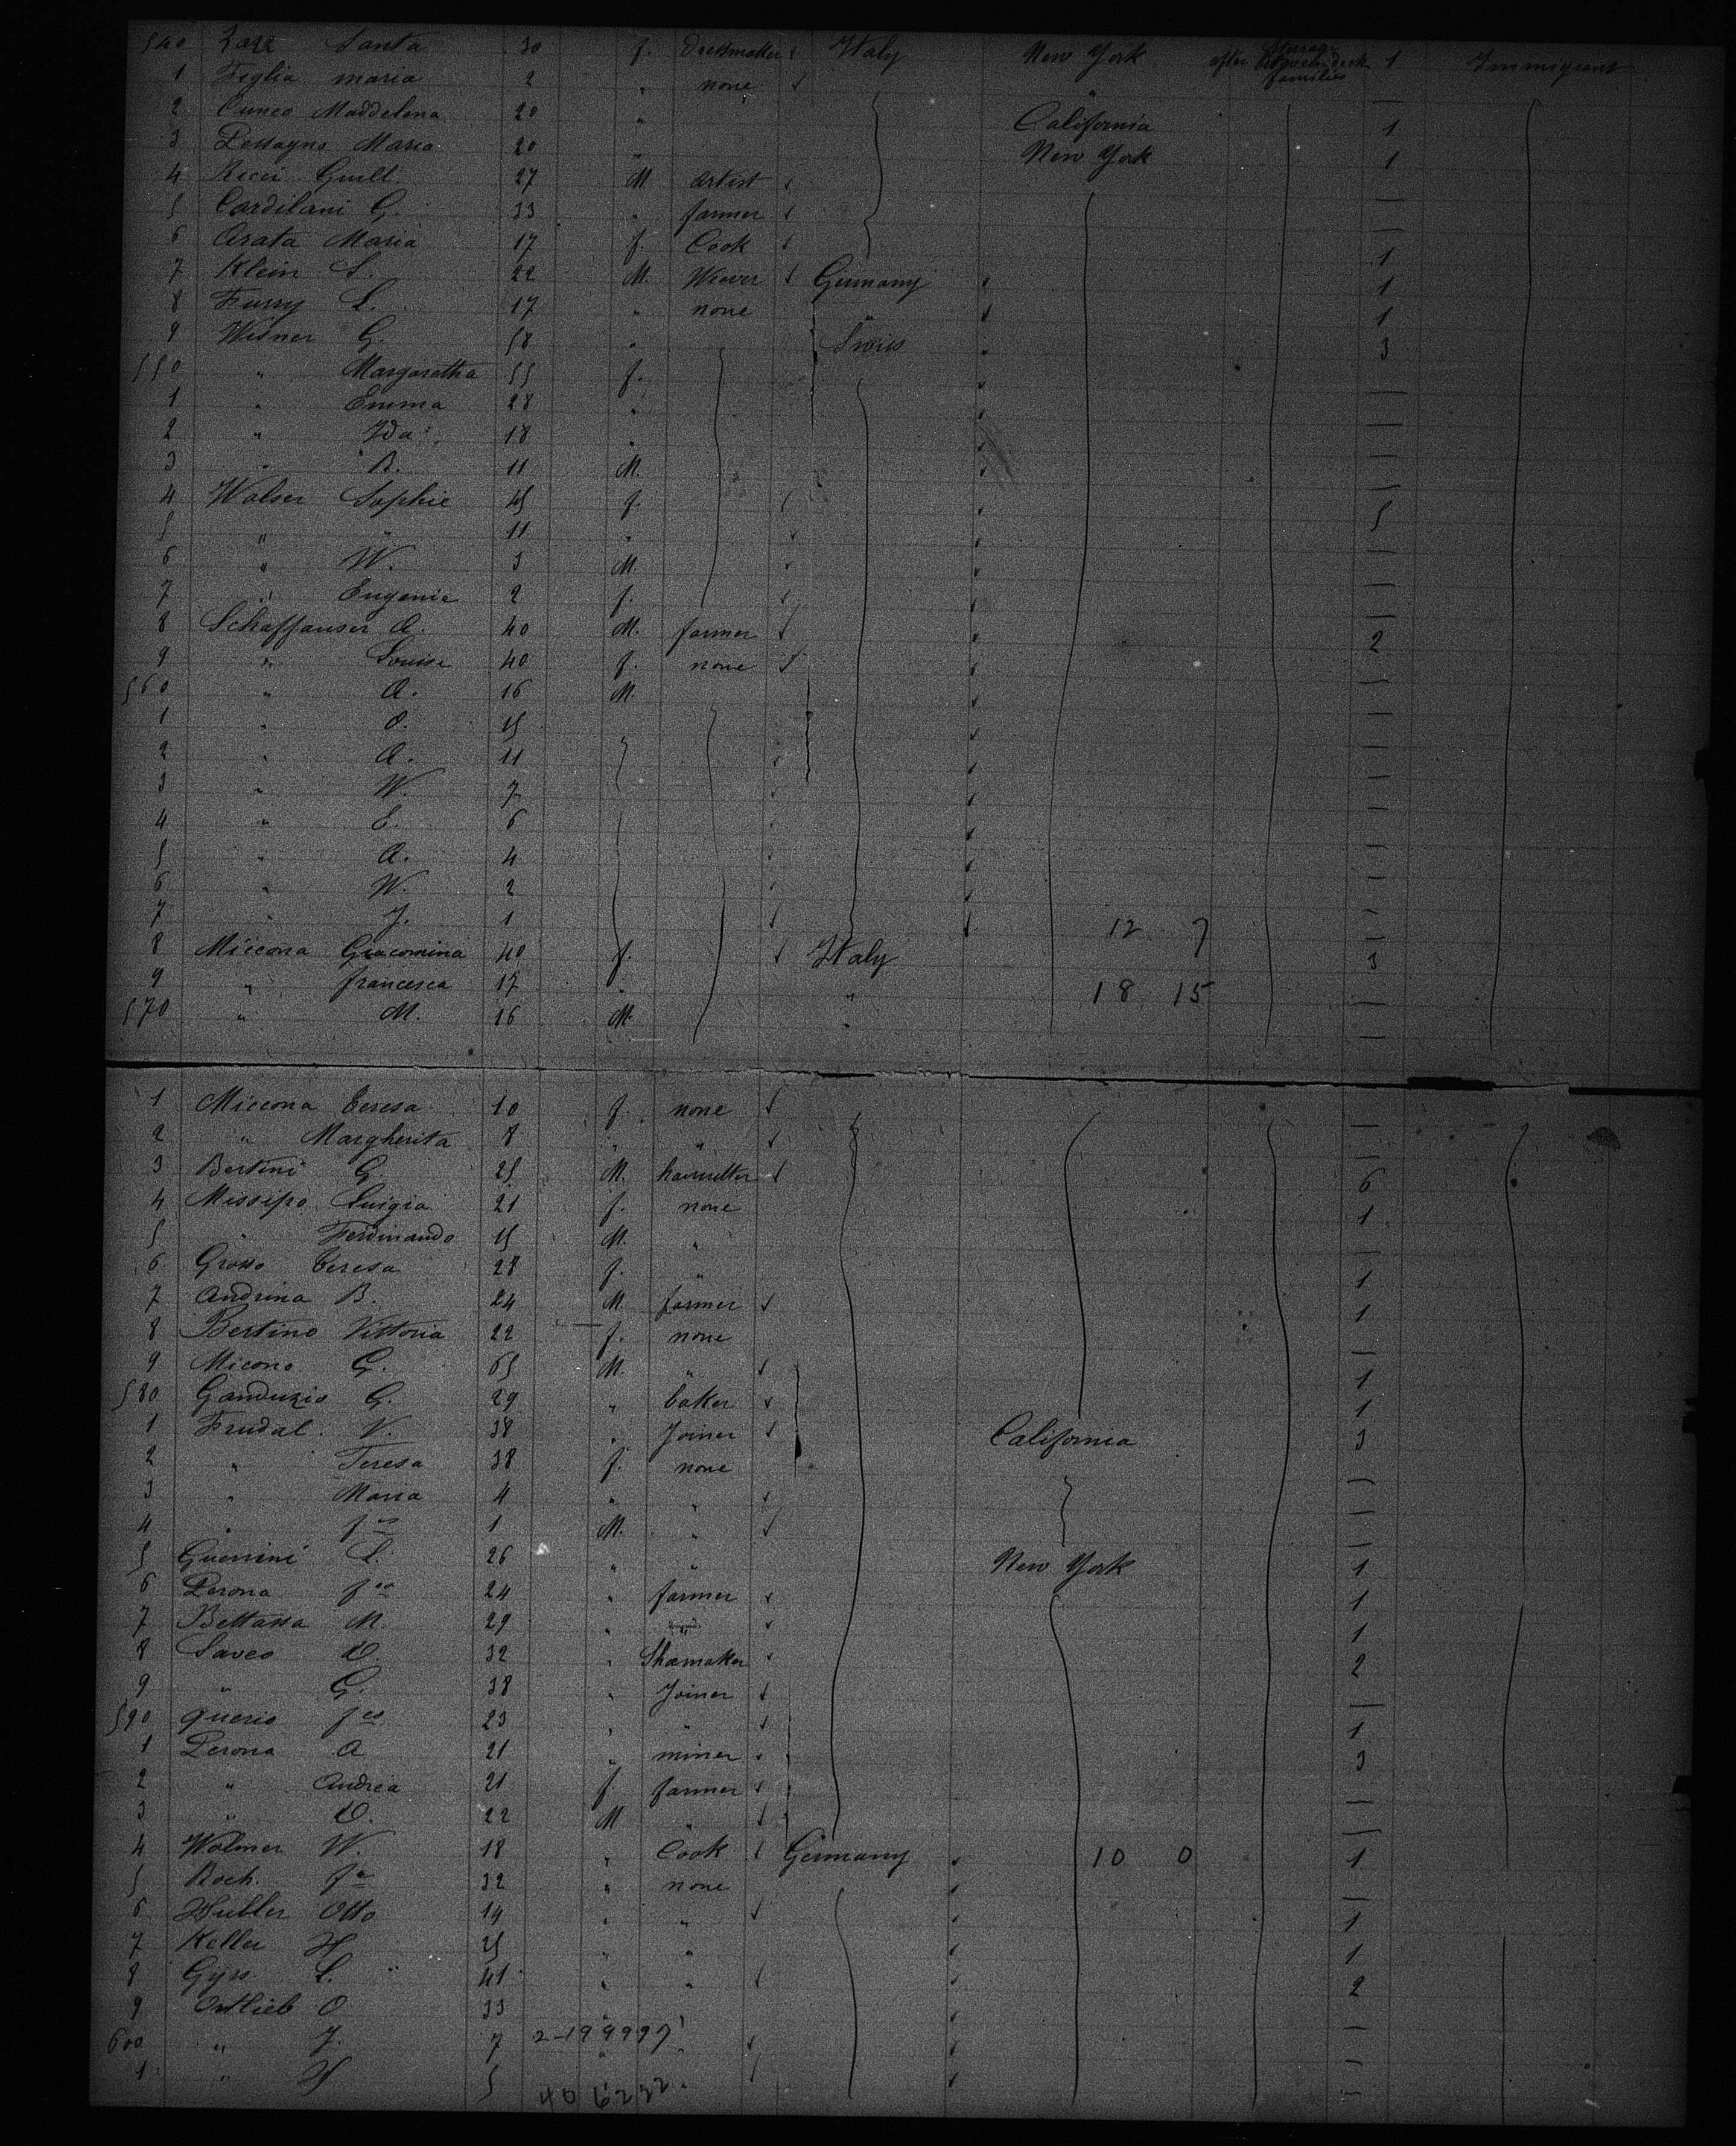 540 Santa 30 f. Dressmaker Italy New York after Steerage betweendeck families 1 Immigrant
1 Figlia maria 2 " none —
2 Cuneo Maddelena 20 " California 1
3 Maria 20 " New York 1
4 Ricci Guill 27 M artist —
5 Cardelani G. 33 " farmer —
6 Arata Maria 17 f. Cook 1
7 Klein S. 22 M. Weaver Germany 1
8 L. 17 " none " 1
9 Wisner G. 58 " Swiss 3
550 " Margaretha 55 f. —
1 " Emma 28 " —
2 " Ida 18 " —
3 " R. 11 M. —
4 Walser Sophie 45 f. 5
5 " " 11 " —
6 " W. 3 M. —
7 " Eugenie 2 f. —
8 Schaffauser A. 40 M. farmer 2
9 " Louise 40 f. none —
560 " A. 16 M. —
1 " O. 15 —
2 " A. 11 —
3 " W. 7 —
4 " E. 6 —
5 " A. 4 —
6 " W. 2 —
7 " J. 1 12 7 —
8 Miccona Giacomina 40 f. Italy 3
9 " francesca 17 " " 18 15 —
570 " M. 16 M. " —
1 Miccona Teresa 10 f. none —
2 " Margherita 8 " " —
3 Bertini G. 25 M. 6
4 Luigia 21 f. none 1
5 " Ferdinando 15 M. " —
6 Grosso Teresa 28 f. " 1
7 Andrina B. 24 M. farmer 1
8 Bertino Vittoria 22 f. none —
9 Micono G. 65 M. " 1
580 Ganduzio G. 29 " baker 1
1 V. 38 " Joiner California 3
2 " Teresa 38 f. none —
3 " Maria 4 " " —
4 " 1 M. " —
5 Guerrini L. 26 " " New York 1
6 Perona 24 " farmer 1
7 Bettassa M. 29 " " 1
8 Saveo D. 32 " Shoemaker 2
9 " G. 38 " Joiner —
590 Querio 23 " " 1
1 Perona A 21 " miner 3
2 " Andrea 21 f. farmer —
3 " D. 22 M " —
4 Wolmer W. 18 " Cook Germany 10 0 1
5 Roch. 32 " none —
6 Otto 19 " " 1
7 Keller H 25 " " 1
8 L. 41 " " 2
9 Ortlieb O 33 " —
600 " J. 7 2-199997 —
1 " H 5 " —